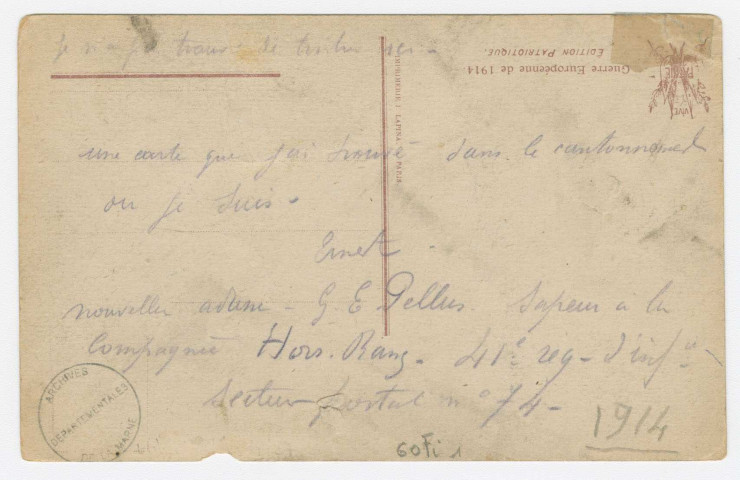 je n'ai pas trouvé de
une carte que j'ai trouvé dans le cantonnement
ou je suis.
Ernest
nouvelle adresse - G. E. Pellus Sapeur à la
Compagnie Hors. Rang - 41e reg - d'infie
Secteur postal n° 74 -
1914
60Fi 1
ARCHIVES
DÉPARTEMENTALES
DE LA MARNE
Guerre Européenne de 1914
ÉDITION PATRIOTIQUE.
IMPRIMERIE I. LAPINA - PARIS
VIVE